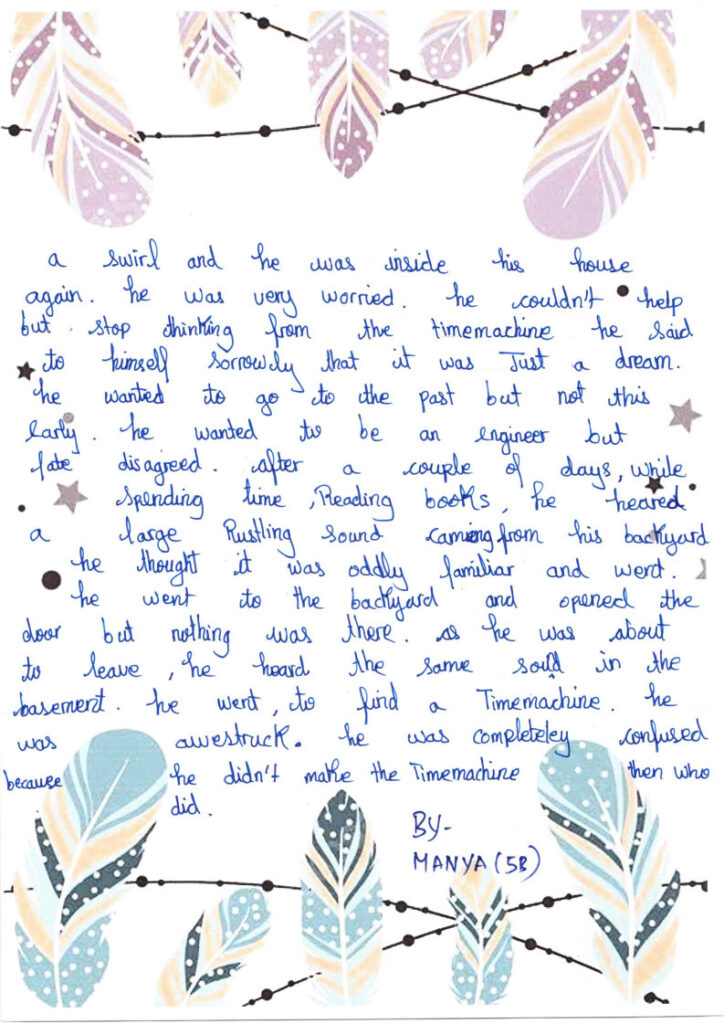 a swirl and he was inside his house
again. he was very worried. he couldn't help
but. stop thinking from the timemachine he said
to himself sorrowly that it was Just a dream.
he wanted to go to the past but not this
early. he wanted to be an engineer but
fate disagreed. after a couple of days, while
spending time, Reading books, he heared
a large Rustling sound coming from his backyard
he thought it was oddly familiar and went.
he went to the backyard and opened the
door but nothing was there. as he was about
to leave, he heard the same sound in the
basement. he went, to find a Timemachine. he
was awestruck. he was completeley confused
because he didn't make the Timemachine then who
did.
BY-
MANYA (5B)